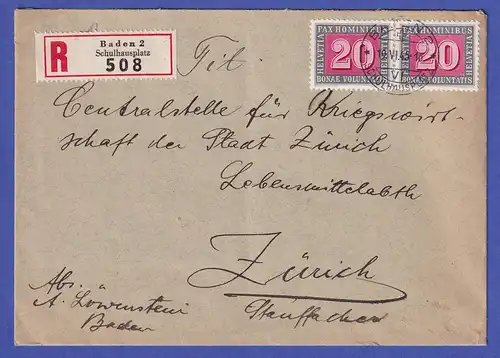 R
Baden 2
Schulhausplatz
508
PAX HOMINIBUS
HELVETIA
20
BONAE VOLUNTATIS
PAX HOMINIBUS
HELVETIA
20
BONAE VOLUNTATIS
Tit.
Centralstelle für Kriegswirt-
schaft der Stadt Zürich
Lebensmittelabth
Zürich
Stauffacher
Abs:
A. Löwenstein
Baden